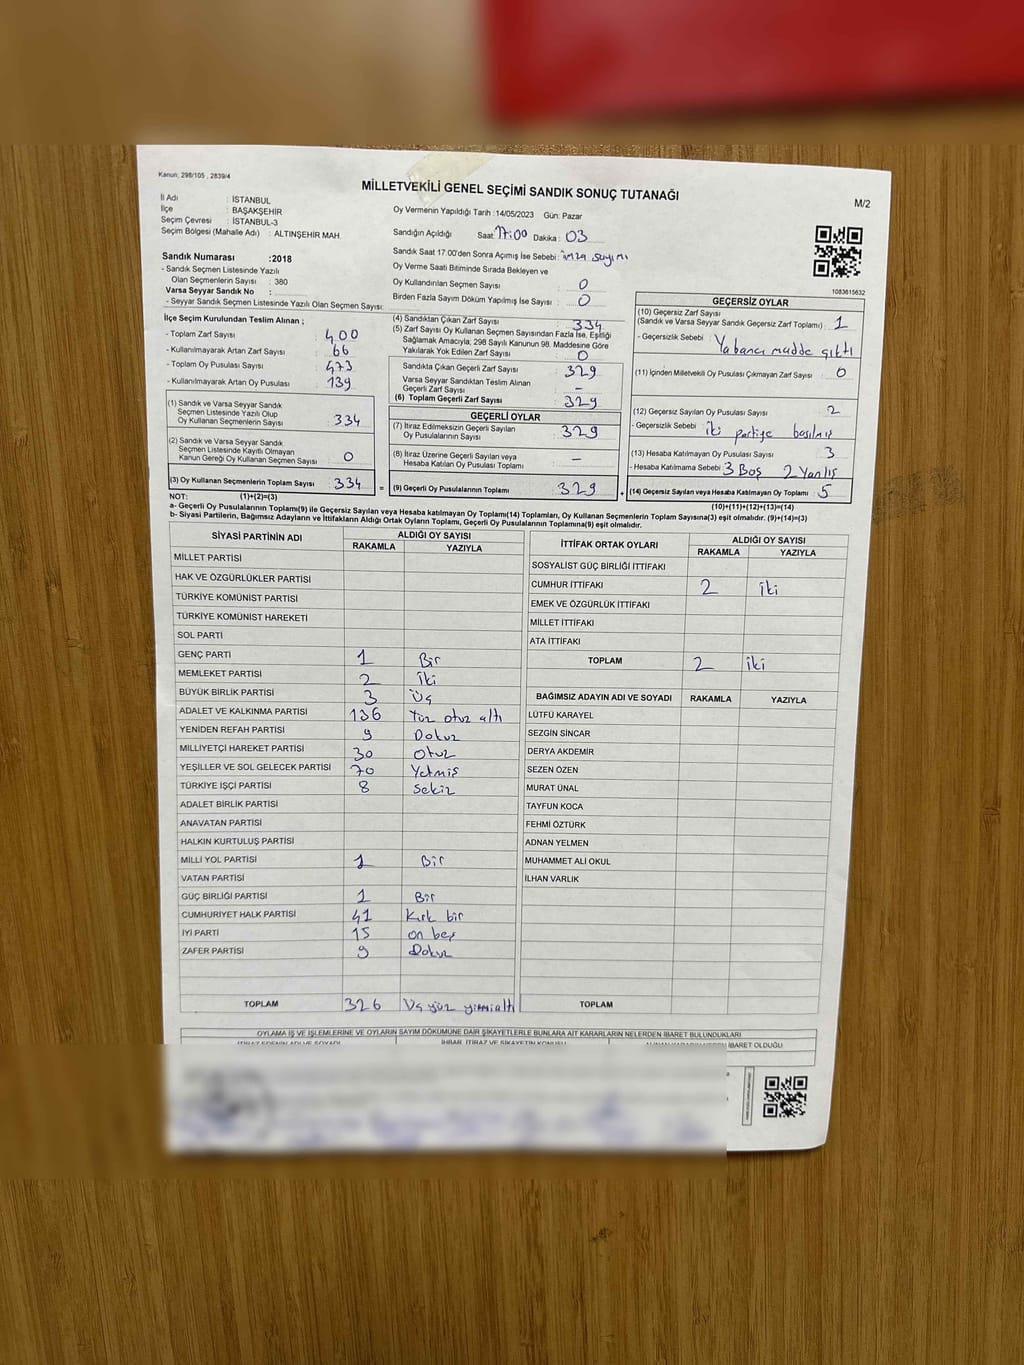 Kanun; 298/105 , 2839/4
MİLLETVEKİLİ GENEL SEÇİMİ SANDIK SONUÇ TUTANAĞI
M/2
İl Adı : İSTANBUL
İlçe : BAŞAKŞEHİR
Seçim Çevresi : İSTANBUL-3
Seçim Bölgesi (Mahalle Adı) : ALTINŞEHİR MAH.
Oy Vermenin Yapıldığı Tarih :14/05/2023 Gün: Pazar
Sandığın Açıldığı Saat: 17:00 Dakika : 03
Sandık Saat 17.00'den Sonra Açımış İse Sebebi : imza sayımı
Oy Verme Saati Bitiminde Sırada Bekleyen ve
Oy Kullandırılan Seçmen Sayısı : 0
Birden Fazla Sayım Döküm Yapılmış İse Sayısı : 0
1083615632
Sandık Numarası :2018
- Sandık Seçmen Listesinde Yazılı
Olan Seçmenlerin Sayısı : 380
Varsa Seyyar Sandık No :
- Seyyar Sandık Seçmen Listesinde Yazılı Olan Seçmen Sayısı:
İlçe Seçim Kurulundan Teslim Alınan ;
- Toplam Zarf Sayısı : 400
- Kullanılmayarak Artan Zarf Sayısı : 66
- Toplam Oy Pusulası Sayısı : 473
- Kullanılmayarak Artan Oy Pusulası : 139
(1) Sandık ve Varsa Seyyar Sandık
Seçmen Listesinde Yazılı Olup
Oy Kullanan Seçmenlerin Sayısı : 334
(2) Sandık ve Varsa Seyyar Sandık
Seçmen Listesinde Kayıtlı Olmayan
Kanun Gereği Oy Kullanan Seçmen Sayısı : 0
(3) Oy Kullanan Seçmenlerin Toplam Sayısı : 334
(4) Sandıktan Çıkan Zarf Sayısı : 334
(5) Zarf Sayısı Oy Kullanan Seçmen Sayısından Fazla İse, Eşitliği
Sağlamak Amacıyla; 298 Sayılı Kanunun 98. Maddesine Göre
Yakılarak Yok Edilen Zarf Sayısı : 0
Sandıkta Çıkan Geçerli Zarf Sayısı : 329
Varsa Seyyar Sandıktan Teslim Alınan
Geçerli Zarf Sayısı : -
(6) Toplam Geçerli Zarf Sayısı : 329
GEÇERLİ OYLAR
(7) İtiraz Edilmeksizin Geçerli Sayılan
Oy Pusulalarının Sayısı : 329
(8) İtiraz Üzerine Geçerli Sayılan veya
Hesaba Katılan Oy Pusulası Toplamı : -
= (9) Geçerli Oy Pusulalarının Toplamı : 329 +
GEÇERSİZ OYLAR
(10) Geçersiz Zarf Sayısı
(Sandık ve Varsa Seyyar Sandık Geçersiz Zarf Toplamı) : 1
- Geçersizlik Sebebi : Yabancı madde çıktı
(11) İçinden Milletvekili Oy Pusulası Çıkmayan Zarf Sayısı : 0
(12) Geçersiz Sayılan Oy Pusulası Sayısı : 2
- Geçersizlik Sebebi : iki partiye basılmış
(13) Hesaba Katılmayan Oy Pusulası Sayısı : 3
- Hesaba Katılmama Sebebi : 3 Boş 2 Yanlış
(14) Geçersiz Sayılan veya Hesaba Katılmayan Oy Toplamı : 5
NOT: (1)+(2)=(3)
(10)+(11)+(12)+(13)=(14)
a- Geçerli Oy Pusulalarının Toplamı(9) ile Geçersiz Sayılan veya Hesaba katılmayan Oy Toplamı(14) Toplamları, Oy Kullanan Seçmenlerin Toplam Sayısına(3) eşit olmalıdır. (9)+(14)=(3)
b- Siyasi Partilerin, Bağımsız Adayların ve İttifakların Aldığı Ortak Oyların Toplamı, Geçerli Oy Pusulalarının Toplamına(9) eşit olmalıdır.
SİYASİ PARTİNİN ADI ALDIĞI OY SAYISI
RAKAMLA YAZIYLA
MİLLET PARTİSİ
HAK VE ÖZGÜRLÜKLER PARTİSİ
TÜRKİYE KOMÜNİST PARTİSİ
TÜRKİYE KOMÜNİST HAREKETİ
SOL PARTİ
GENÇ PARTİ 1 Bir
MEMLEKET PARTİSİ 2 İki
BÜYÜK BİRLİK PARTİSİ 3 Üç
ADALET VE KALKINMA PARTİSİ 136 Yüz otuz altı
YENİDEN REFAH PARTİSİ 9 Dokuz
MİLLİYETÇİ HAREKET PARTİSİ 30 Otuz
YEŞİLLER VE SOL GELECEK PARTİSİ 70 Yetmiş
TÜRKİYE İŞÇİ PARTİSİ 8 Sekiz
ADALET BİRLİK PARTİSİ
ANAVATAN PARTİSİ
HALKIN KURTULUŞ PARTİSİ
MİLLİ YOL PARTİSİ 1 Bir
VATAN PARTİSİ
GÜÇ BİRLİĞİ PARTİSİ 1 Bir
CUMHURİYET HALK PARTİSİ 41 Kırk bir
İYİ PARTİ 15 on beş
ZAFER PARTİSİ 9 Dokuz
TOPLAM 326 Üç yüz yirmialtı
İTTİFAK ORTAK OYLARI ALDIĞI OY SAYISI
RAKAMLA YAZIYLA
SOSYALİST GÜÇ BİRLİĞİ İTTİFAKI
CUMHUR İTTİFAKI 2 iki
EMEK VE ÖZGÜRLÜK İTTİFAKI
MİLLET İTTİFAKI
ATA İTTİFAKI
TOPLAM 2 iki
BAĞIMSIZ ADAYIN ADI VE SOYADI RAKAMLA YAZIYLA
LÜTFÜ KARAYEL
SEZGİN SİNCAR
DERYA AKDEMİR
SEZEN ÖZEN
MURAT ÜNAL
TAYFUN KOCA
FEHMİ ÖZTÜRK
ADNAN YELMEN
MUHAMMET ALİ OKUL
İLHAN VARLIK
TOPLAM
OYLAMA İŞ VE İŞLEMLERİNE VE OYLARIN SAYIM DÖKÜMÜNE DAİR ŞİKAYETLERLE BUNLARA AİT KARARLARIN NELERDEN İBARET BULUNDUKLARI
İTİRAZ EDENİN ADI VE SOYADI İHBAR, İTİRAZ VE ŞİKAYETİN KONUSU İBARET OLDUĞU